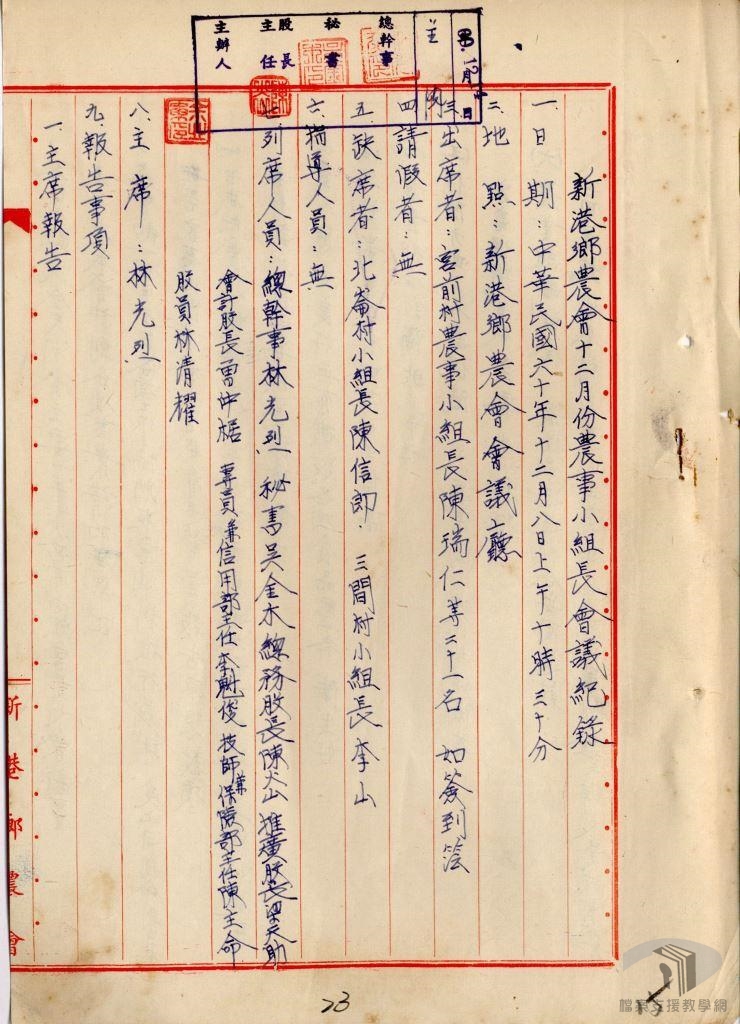 新港鄉農會十二月份農事小組長會議紀錄
一、日期：中華民國六十年十二月八日上午十時三十分
二、地點：新港鄉農會會議廳
三、出席者：宮前村農事小組長陳瑞仁等二十一名 如簽到簿
四、請假者：無
五、缺席者：北崙村小組長陳信郎．三間村小組長李山
六、指導人員：無
七、列席人員：總幹事林光烈 秘書吳金木 總務股長陳火山 推廣股長梁天助
會計股長 專員兼信用部主任李魁俊 技師兼保險部主任陳主命
股員林清耀
八、主席：林光烈
九、報告事項
一、主席報告
總幹事
秘書
股長
主任
主辦人
12月
日
新港鄉農會
23
檔案支援教學網